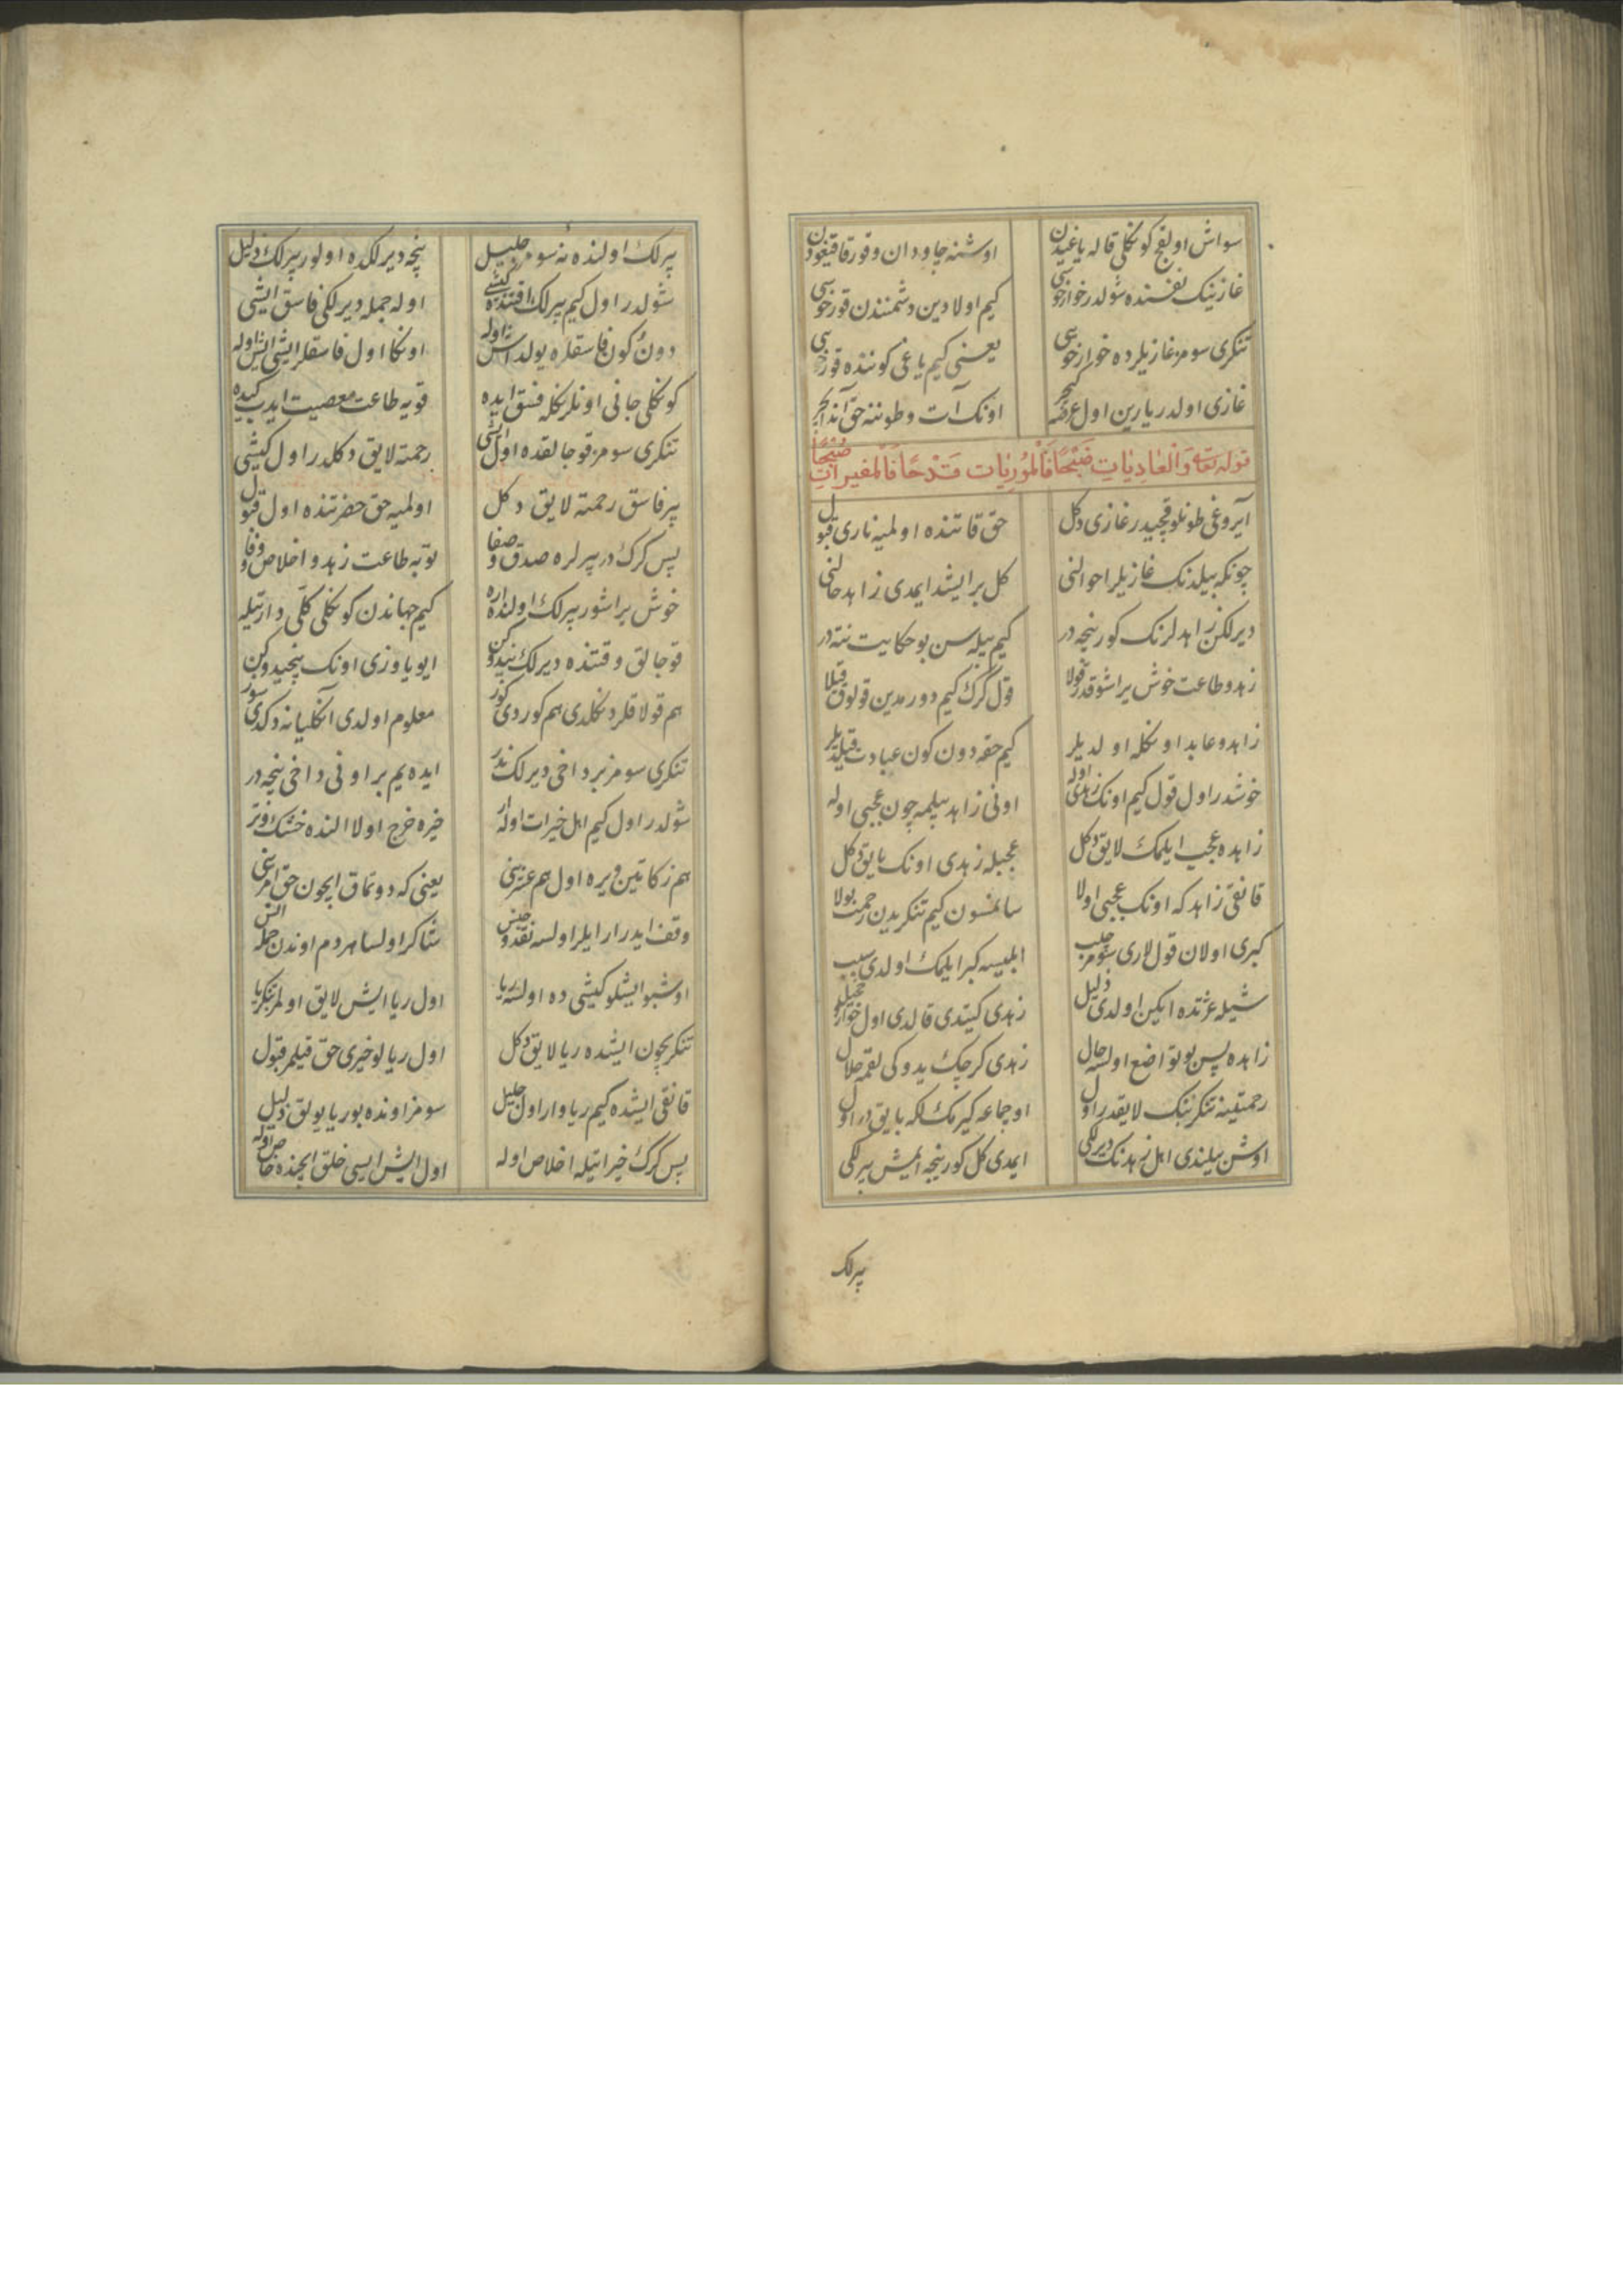 سواش اولیجق کوکلی قاله یاغیدن اوشنه جاودان و قورقا قیغودن
غازینک نفسنده شولدر خوارخویی کیم اولا دین دشمنندن قورخویی
تنکری سومز غازیلرده خوارخویی یعنی کیم یاغی کوننده قورخویی
غازی اولدر یارین اول عرضه اونک آت و طوننه حق آند ایچر
قوله تعالی وَالْعَادِیَاتِ ضَبْحًا فَالْمُورِیَاتِ قَدْحًا فَالْمُغِیرَاتِ صُبْحًا
آیروغی طونلو قچیدر غازی دکل حق قاتنده اولمیه ناری قبول
چونکه بیلدنک غازیلر احوالنی کل بر ایشد ایمدی زاهد حالنی
دیرلکن زاهدلرنک کور نیجه در کیم بیله سن بو حکایت نته در
زهد و طاعت خوش یراشوقدر قولا قول کرک کیم دورمدین قولوق قیلا
زاهد و عابد اونکله اولدیلر کیم حقه دون کون عبادت قیلدیلر
خوشدر اول قول کیم اونک زهدی اوله اونی زاهد بیلمه چون عجبی اوله
زاهده عجب ایلمک لایق دکل عجبله زهدی اونک بایق دکل
قانقی زاهد که اونک عجبی اولا سانمسون کیم تنکریدن رحمت بولا
کبری اولان قول لاری سومز چلب ابلیسه کبر ایلمک اولدی سبب
شیله عزتده ایکن اولدی ذلیل زهدی کیتدی قالدی اول خوار
زاهده پس بو تواضع اولسه حال زهدی کرچک یدوکی لقمه حلال
رحمتینه تنکرینک لایقدر اول اوچماغه کیرمکلکه بایق در اول
اوش بیلندی اهل زهدنک دیرلکی ایمدی کل کور نیجه ایمش پیرلکی
پیرلک
پیرلک اولنده نه سومز جلیل نیجه دیرلکده اولور پیرلک ذلیل
شولدر اول کیم پیرلک وقتنده کیشی اوله جمله دیرلکی فاسق ایشی
دون کون فاسقلره یولداش اوله اونکا اول فاسقلر ایشی ایش اوله
کوکلی جانی اونلرنکله فسق ایده قویه طاعت معصیت ایدب کیده
تنکری سومز قوجالقده اول ایشی رحمته لایق دکلدر اول کیشی
پیر فاسق رحمته لایق دکل اولمیه حق حضرتنده اول قبول
پس کرک در پیرلره صدق و صفا توبه طاعت زهد و اخلاص و وفا
خوش یراشور پیرلک اولنده کیم جهاندن کوکلی کلی دارتیله
قوجالق وقتنده دیرلک نیدوکن ایو یاوزی اونک نیجیدوکن
هم قولاقلر دنکلدی هم کوردی کوز معلوم اولدی آنکلیانه دکدی سوز
تنکری سومز بر داخی دیرلک ندر ایده یم بر اونی داخی نیجه در
شولدر اول کیم اهل خیرات اوله خیره خرج اولا النده خشک و تر
هم زکاتین ویره اول هم عشرینی یعنی که دوتماق ایچون حق امرینی
وقف ایدر ار ایلر اولسه نقد و جنس شاکر اولسا هردم اوندن جمله انس
اوشبو ایشلو کیشی ده اولسه ریا اول ریا ایش لایق اولمز تنکریا
تنکریچون ایشده ریا لایق دکل اول ریالو خیری حق قیلمز قبول
قانقی ایشده کیم ریا وار اول جلیل سومز اونده بو ریا یولق ذلیل
پس کرک خیراتیله اخلاص اوله اول ایش ایسی خلق ایچنده خاص اوله